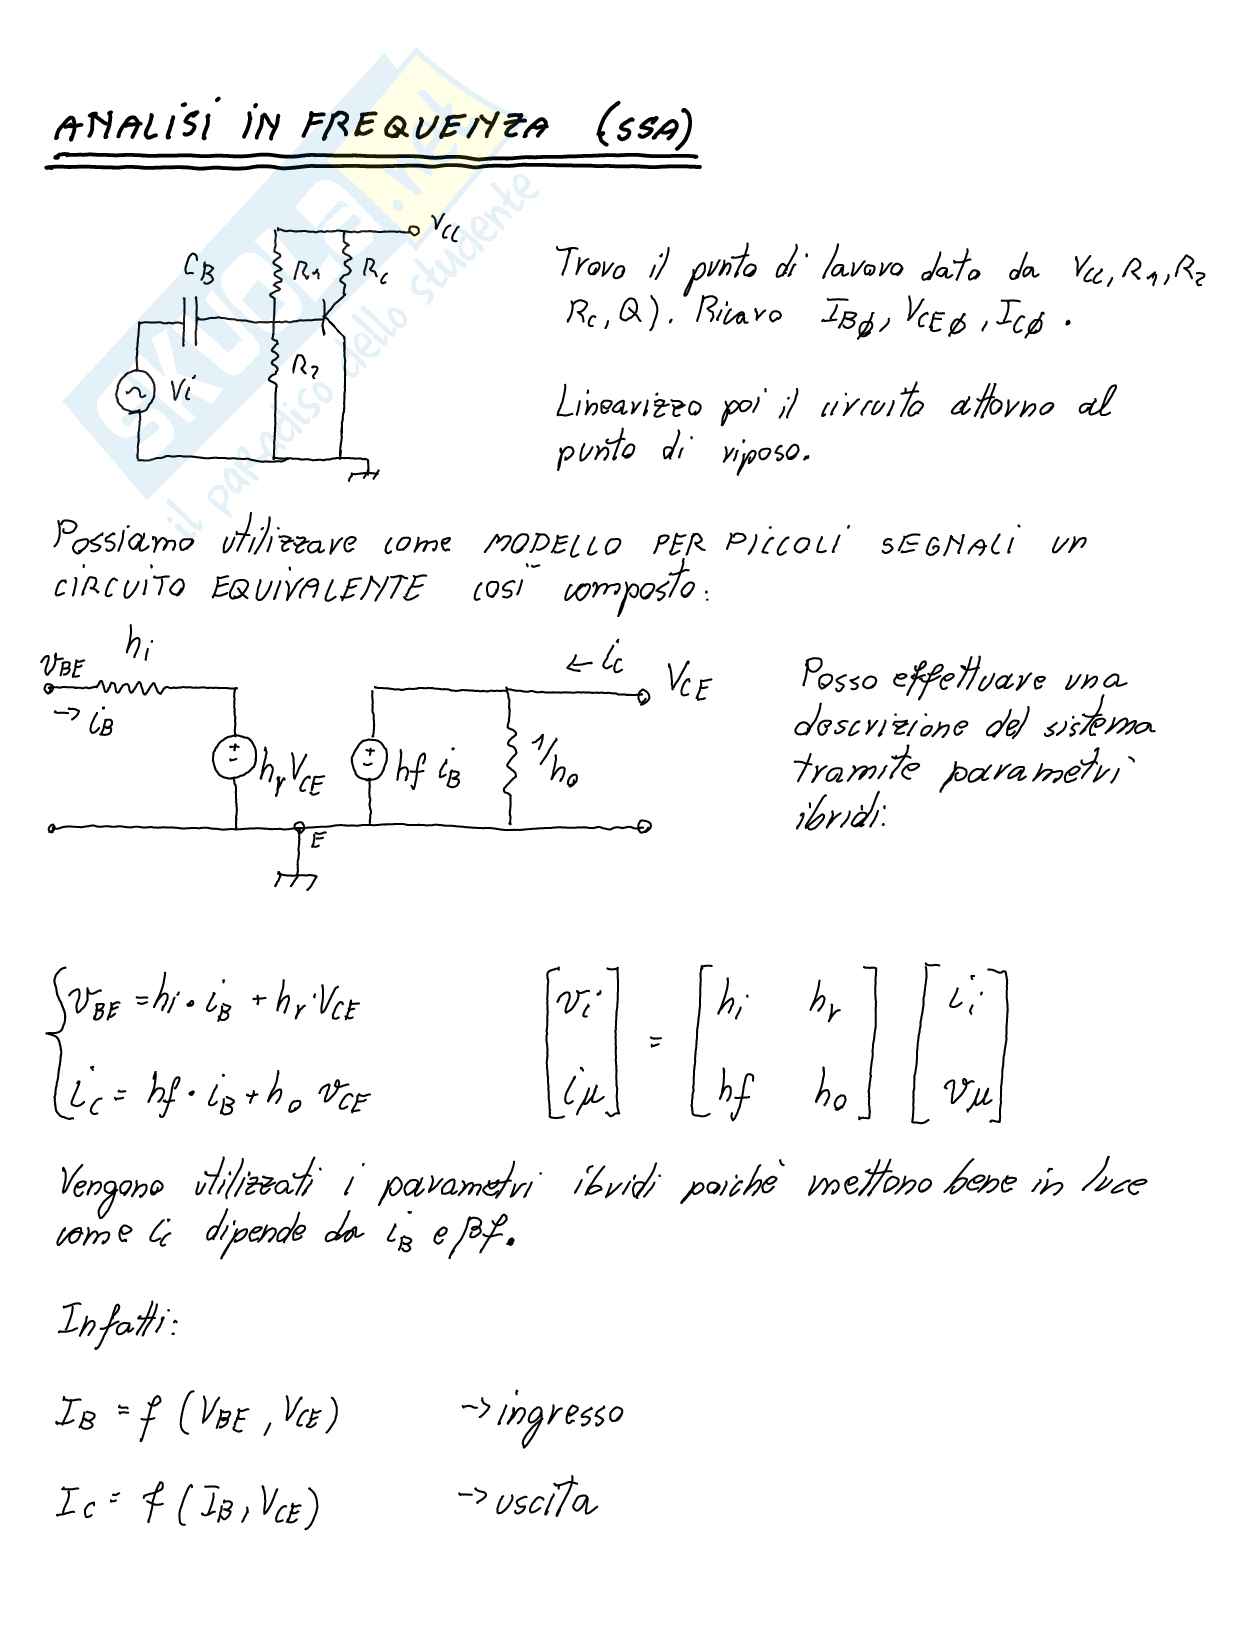 ANALISI IN FREQUENZA (SSA)
VCC
CB
R1
RC
R2
Vi
Trovo il punto di lavoro dato da VCC, R1, R2
RC, Q). Ricavo IBφ, VCEφ, ICφ.
Linearizzo poi il circuito attorno al
punto di riposo.
Possiamo utilizzare come MODELLO PER PICCOLI SEGNALI un
CIRCUITO EQUIVALENTE così composto:
hi
vBE
→ iB
+
-
hr VCE
+
-
hf iB
1/ho
← ic
VCE
E
Posso effettuare una
descrizione del sistema
tramite parametri
ibridi:
vBE = hi · iB + hr · VCE
iC = hf · iB + ho vCE
[vi iμ] = [hi hr hf ho] [ii vμ]
Vengono utilizzati i parametri ibridi poichè mettono bene in luce
come ic dipende da iB e βf.
Infatti:
IB = f (VBE, VCE) → ingresso
IC = f (IB, VCE) → uscita
SKUOLA.net
il paradiso dello studente